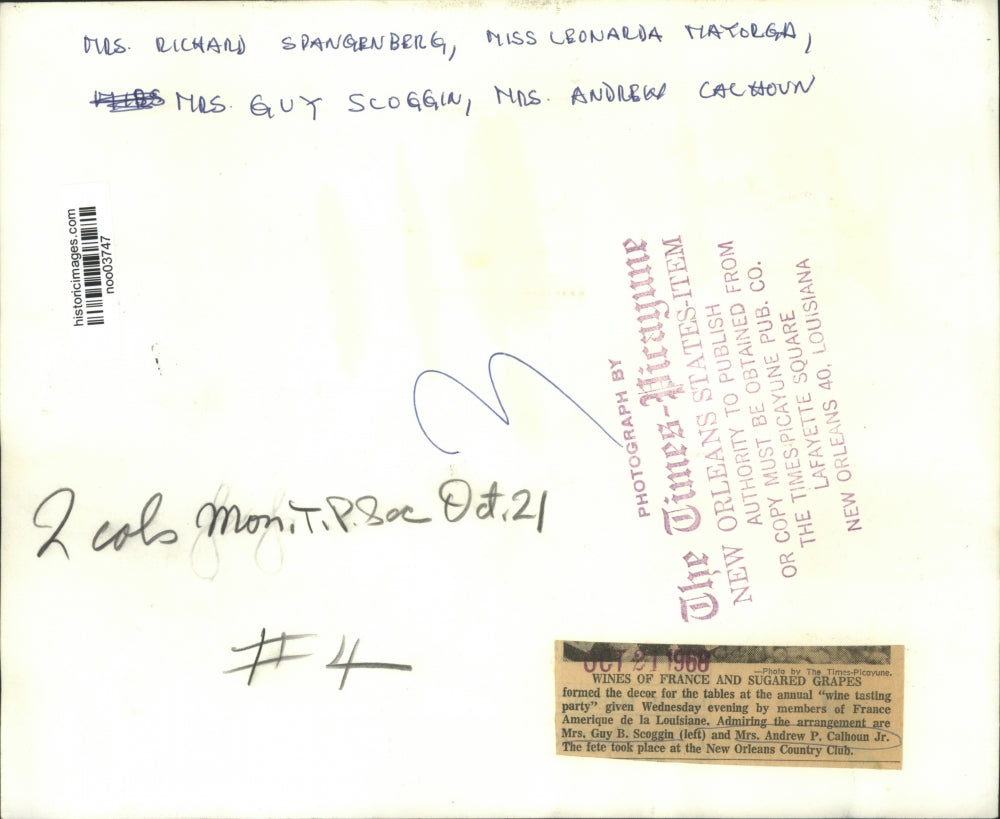 MRS. RICHARD SPANGENBERG, MISS LEONARDA MAYORGA,
MRS. GUY SCOGGIN, MRS. ANDREW CALHOUN
historicimages.com
noo03747
PHOTOGRAPH BY
The Times-Picayune
NEW ORLEANS STATES-ITEM
AUTHORITY TO PUBLISH
OR COPY MUST BE OBTAINED FROM
THE TIMES-PICAYUNE PUB. CO.
LAFAYETTE SQUARE
NEW ORLEANS 40, LOUISIANA
2 cols Mon. T.P. Soc Oct. 21
#4
OCT 21 1968
—Photo by The Times-Picayune.
WINES OF FRANCE AND SUGARED GRAPES
formed the decor for the tables at the annual “wine tasting
party” given Wednesday evening by members of France
Amerique de la Louisiane. Admiring the arrangement are
Mrs. Guy B. Scoggin (left) and Mrs. Andrew P. Calhoun Jr.
The fete took place at the New Orleans Country Club.